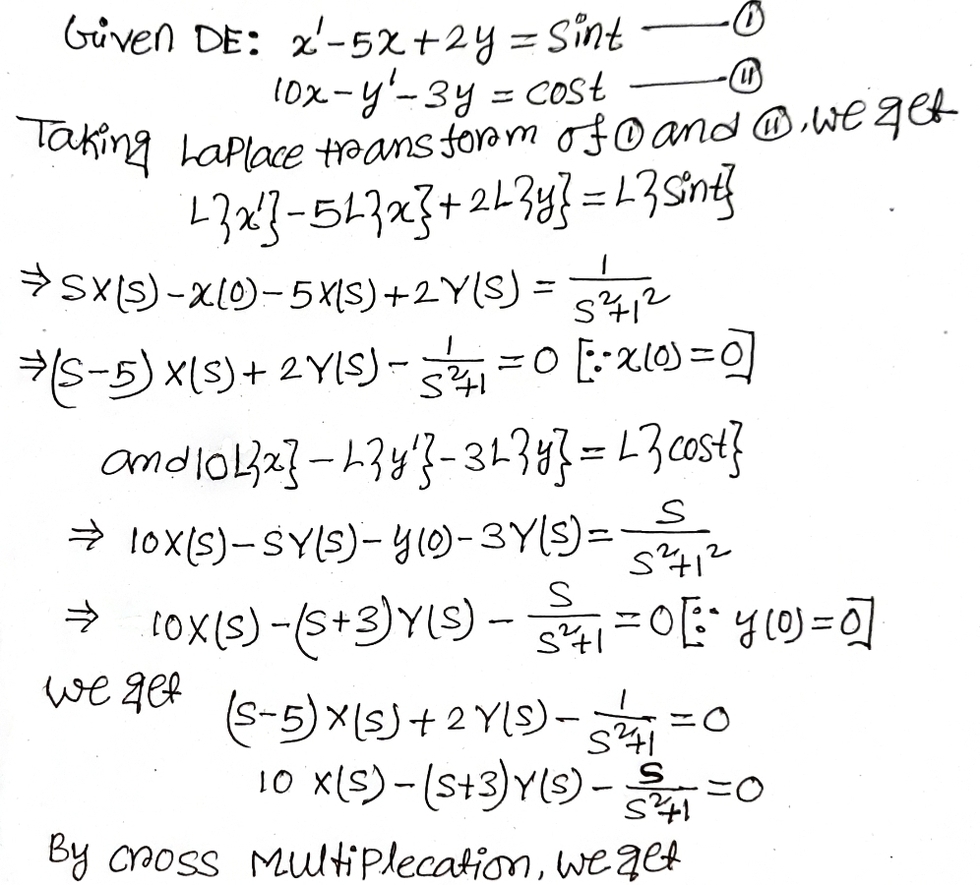 Given DE: x'-5x+2y = Sint —— (i)
10x-y'-3y = cost —— (ii)
Taking Laplace transform of (i) and (ii), we get
L{x'}-5L{x}+2L{y} = L{Sint}
⇒ SX(S)-x(0)-5X(S)+2Y(S) = 1/(S²+1²)
⇒ (S-5)X(S)+2Y(S)- 1/(S²+1) = 0 [∵ x(0)=0]
and 10L{x}-L{y'}-3L{y} = L{cost}
⇒ 10X(S)-SY(S)-y(0)-3Y(S) = S/(S²+1²)
⇒ 10X(S)-(S+3)Y(S)- S/(S²+1) = 0 [∵ y(0)=0]
we get (S-5)X(S)+2Y(S)- 1/(S²+1) = 0
10 X(S)-(S+3)Y(S)- S/(S²+1) = 0
By cross Multiplecation, we get